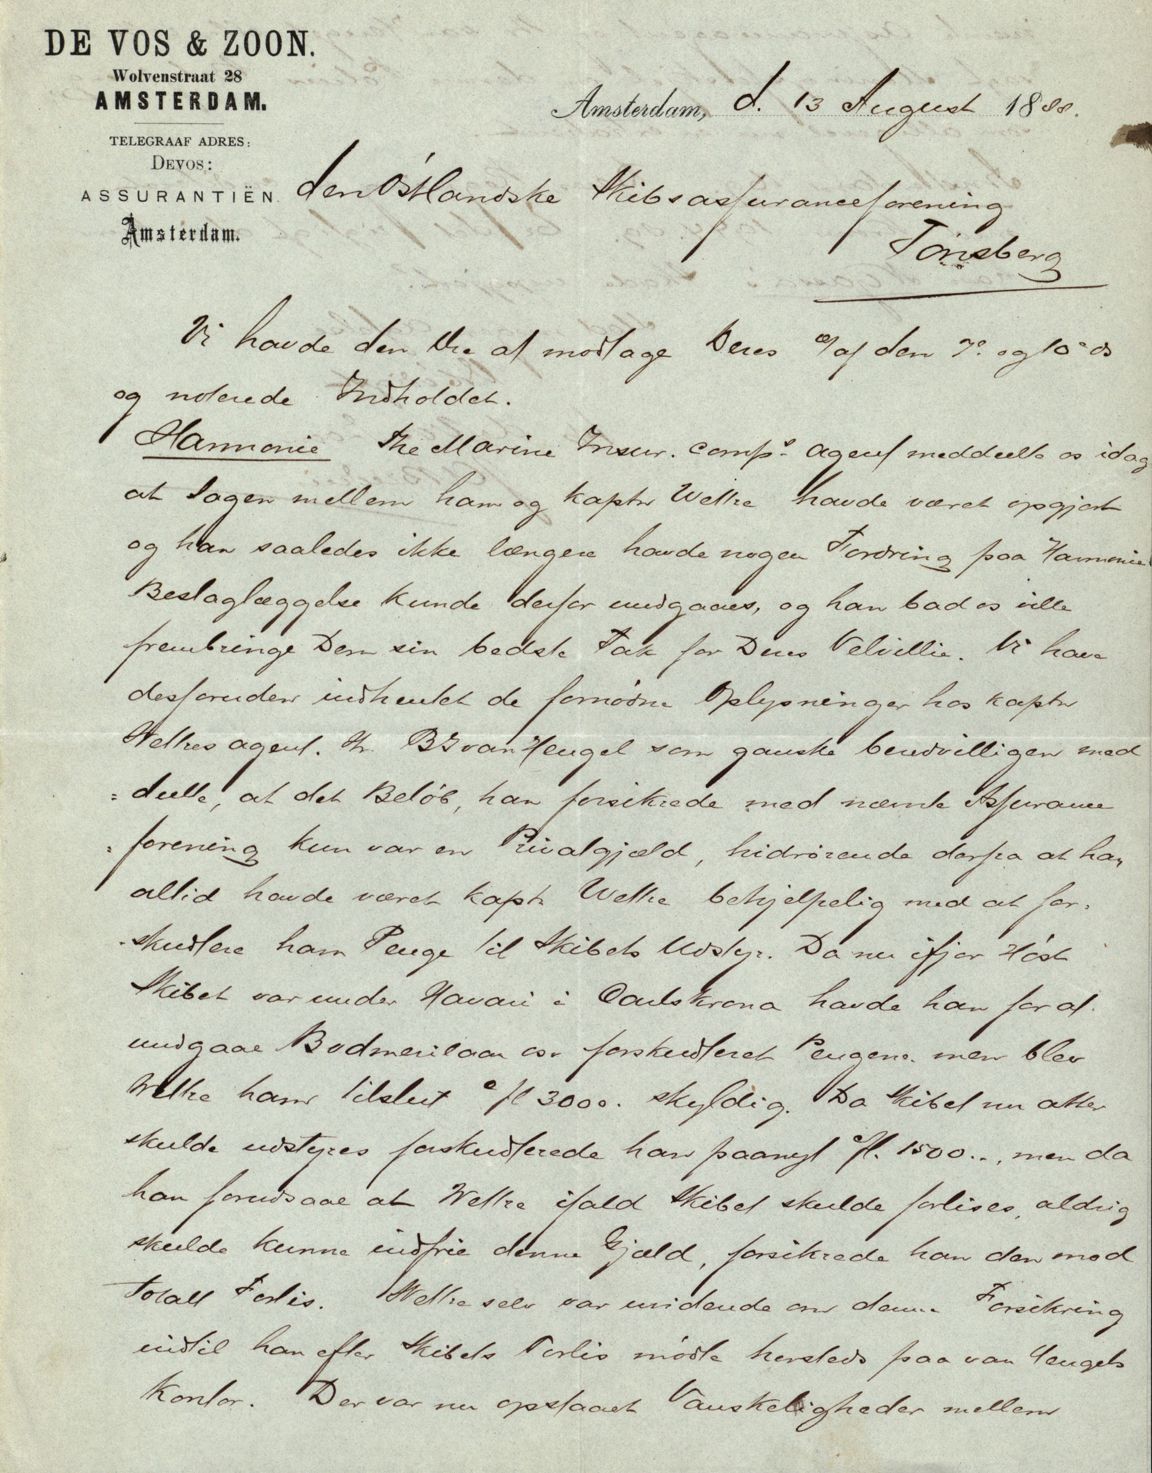 DE VOS & ZOON.
Wolvenstraat 28
AMSTERDAM.
TELEGRAAF ADRES:
DEVOS:
ASSURANTIËN
Amsterdam.
Amsterdam, d. 13 August 1888.
den Østlandske Skibsassuranceforening
Tønsberg
Vi havde den Ære at modtage Deres af den 7de og 10de ds
og noterede Indholdet.
Harmonie The Marine Insur. Comps agent meddeelte os idag
at Sagen mellem ham og Kaptn Welke havde været opgjort
og han saaledes ikke længere havde nogen Fordring paa Harmonie
Beslaglæggelse kunde derfor undgaaes, og han bad os ville
frembringe Dem sin bedste Tak for Deres Velvillie. Vi have
desforuden indhentet de fornødne Oplysninger hos Kaptn
Welkes agent. Hr. B J van Hengel som ganske beredvilligen med
=deelte, at det Beløb, han forsikrede med nævnte Assurance
=forening kun var en Privatgjæld, hidrørende derfra at han
altid havde været Kaptn Welke behjelpelig med at for=
=skudtere ham Penge til Skibets Udstyr. Da nu ifjor Høst
Skibet var under Havari i Carlskrona havde han for at
undgaae Bodmerilaan forskudteret Pengene men blev
Welke ham tilslut fl 3000. skyldig. Da Skibet nu atter
skulde udstyres forskudterede han paanyt fl. 1500.., men da
han forudsaae at Welke ifald Skibet skulde forlises, aldrig
skulde kunne indfrie denne Gjæld, forsikrede han den mod
Totalt Forlis. Welke selv var uvidende om denne Forsikring
indtil han efter Skibets Forlis mødte hersteds paa van Hengels
Kontor. Der var nu opstaaet Vanskeligheder mellem